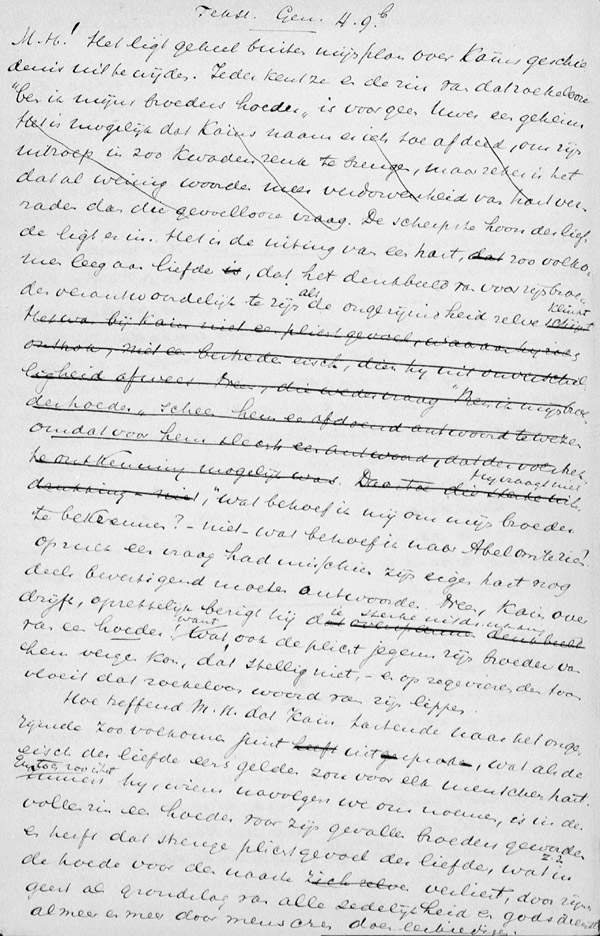 Tekst. Gen. 4.9b
M.H.! Het ligt geheel buiten mijn plan over Kaïns geschie
denis uit te wijden. Ieder kent ze en de zin van dat roekelooze
"ben ik mijns broeders hoeder" is voor geen Uwer een geheim
Het is mogelijk dat Kaïns naam er iets toe afdeed, om zijn
uitroep in zoo kwaden zin te brengen, maar zeker is het
dat al weinig woorden meer verdorvenheid van hart ver
raden dan die gevoellooze vraag. De scherpste hoon der lief
de ligt er in. Het is de uiting van een hart, dat zoo volko
men leeg aan liefde is, dat het denkbeeld van voor zijn broe
der verantwoordelijk te zijn als de ongerijmdheid zelve klinkt
Het was bij Kaïn niet een plichtgevoel, waaraan hij zich
onttrok, niet een eisch, dien hij uit onverschil
ligheid afwees Neen, die wedervraag "Ben ik mijns broe
ders hoeder" scheen hem een afdoend antwoord te wezen
omdat voor hem slechts een antwoord, dat der
ontkenning mogelijk was. Daartoe die sterke uit Hij vraagt niet
drukking niet, "wat behoef ik mij om mijn broeder
te bekreunen? - niet - wat behoef ik naar Abel om te zien?
op zulk een vraag had misschien zijn eigen hart nog
deels bevestigend moeten antwoorden. Neen, Kaïn over
drijft, opzettelijk bezigt hij de sterke uitdrukking
van een hoeder! want Wat ook de plicht jegens zijn broeder van
hem vergen kon, dát stellig niet, - en op zegevierenden toon
vloeit dat roekeloos woord van zijn lippen.
Hoe treffend M.H. dat Kaïn tastende naar het onge
rijmde zoo volkomen juist heeft uitgesproken, wat als de
eisch der liefde eens gelden zou voor elk menschenhart.
En toch zoo is het
immers hij, wiens navolgers we ons noemen, is in den
vollen zin een hoeder voor zijn gevallen broeders geworden
en heeft dat strenge plichtgevoel der liefde, wat in
de hoede voor den naaste zich zelve verliest, door zijn
geest als grondslag van alle zedelijkheid en godsdienst
al meer en meer door menschen doen